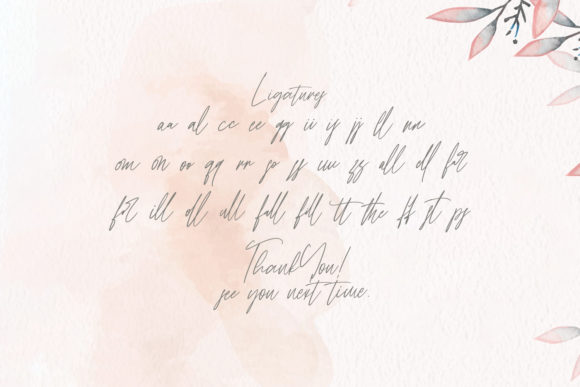 Ligatures
aa al cc ee gg ii is jj ll nn
om on oo qq rr so ss uu zz all ell for
for ill oll ull full foll tt the ff st ps
Thank You!
see you next time.